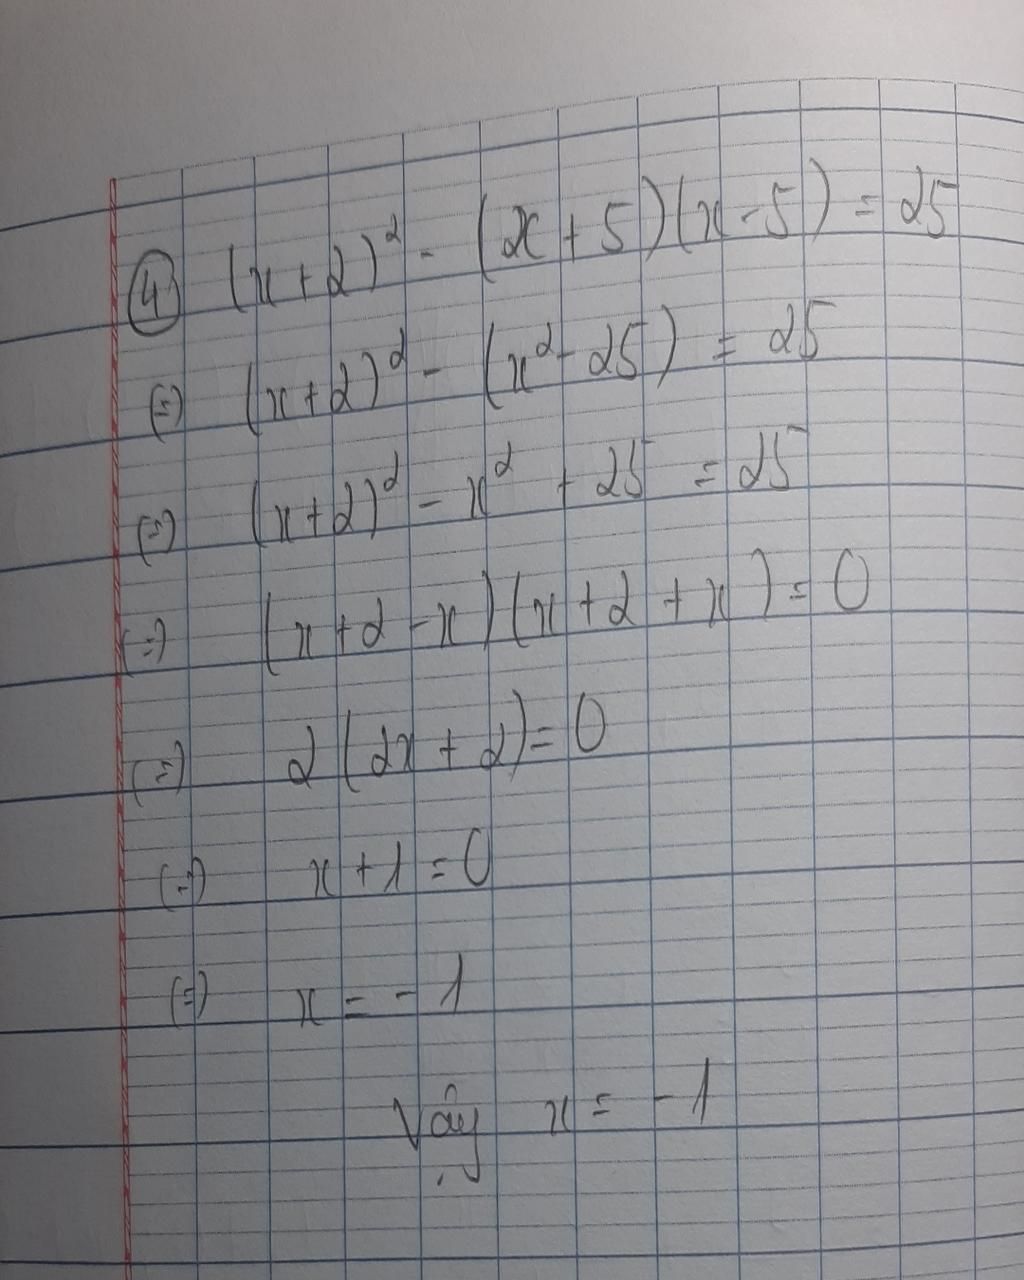 ④ (x+2)² - (x+5)(x-5) = 25
(=) (x+2)² - (x²-25) = 25
(=) (x+2)² - x² + 25 = 25
(=) (x+2-x)(x+2+x) = 0
(=) 2(2x+2) = 0
(=) x+1 = 0
(=) x = -1
Vậy x = -1